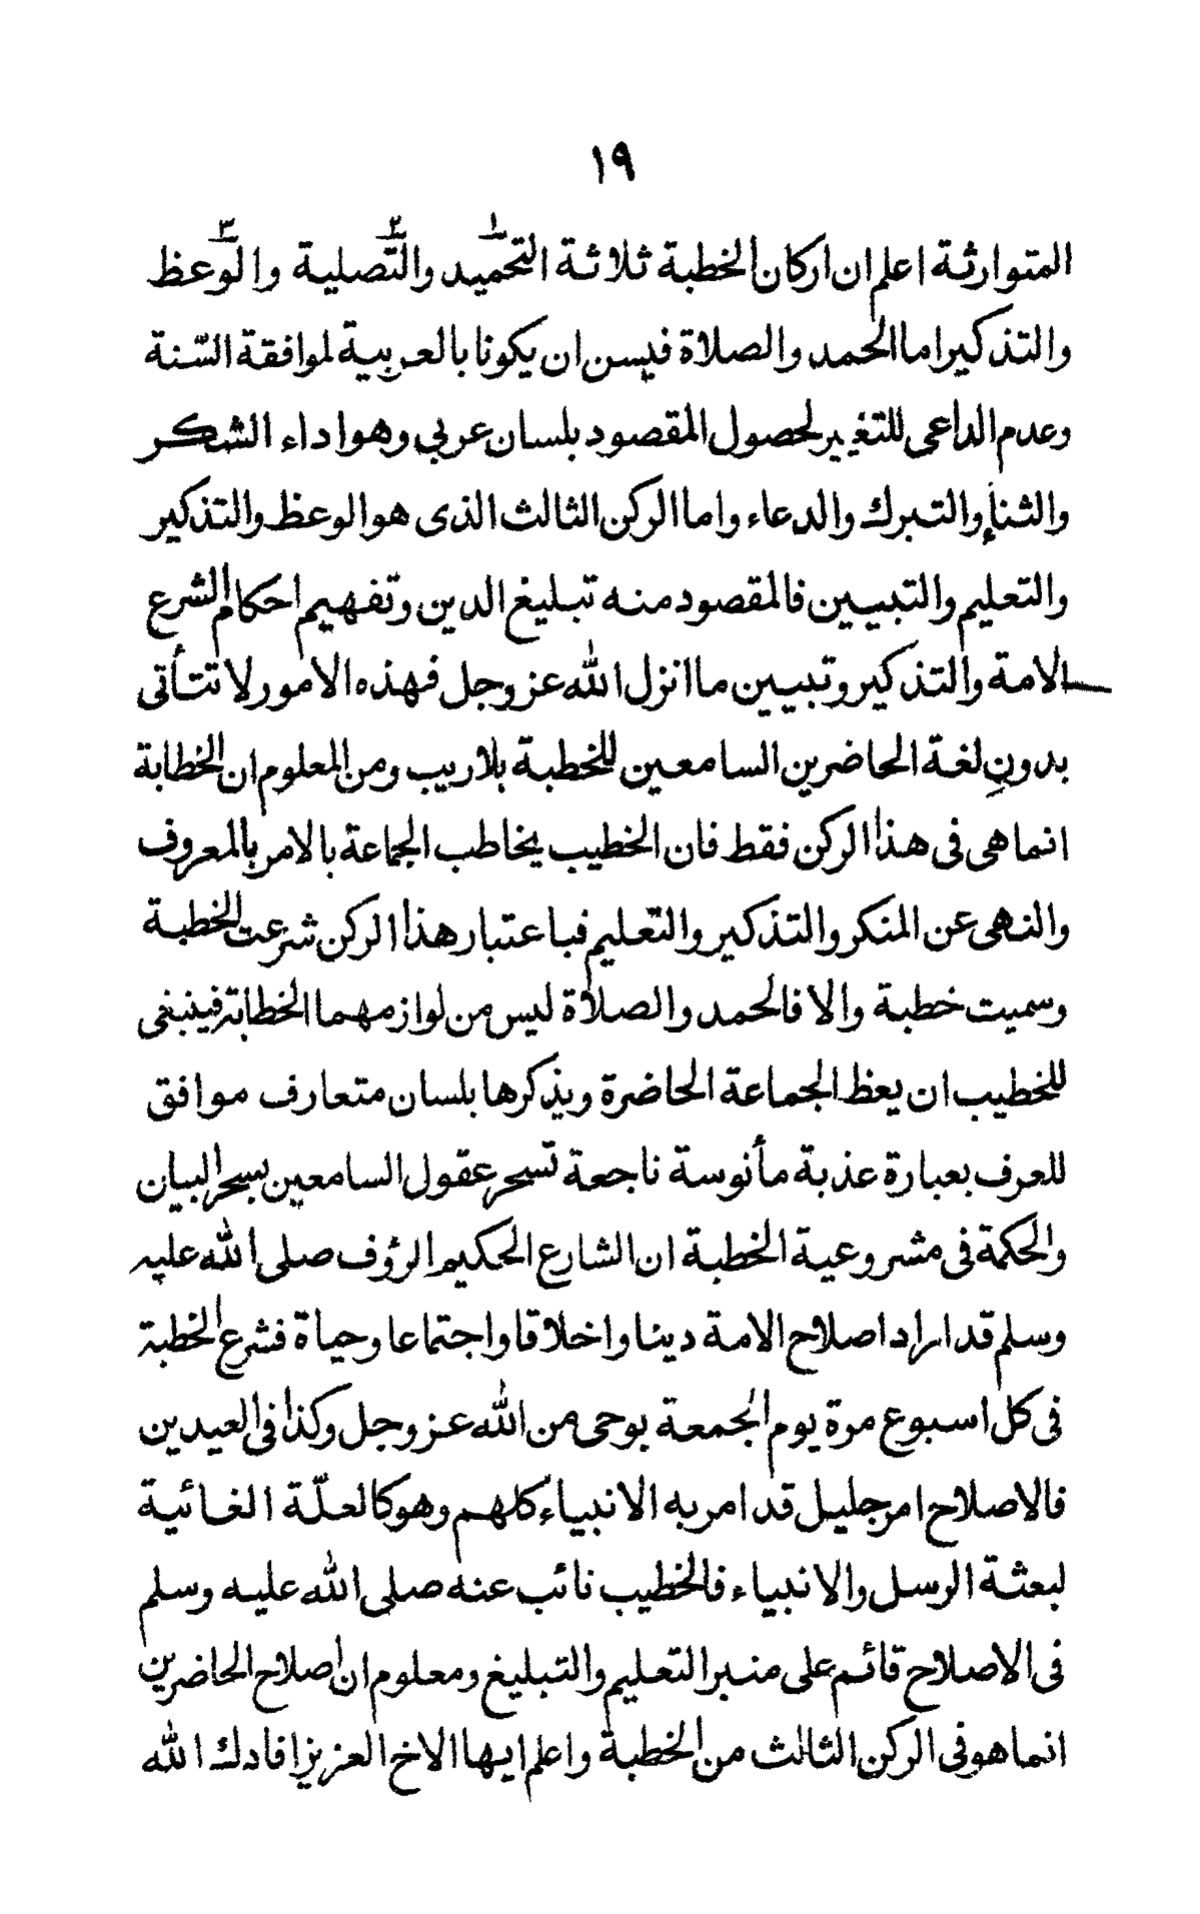 ١٩
المتوارثة اعلم ان اركان الخطبة ثلاثة التحميد١ والتّصلية٢ والوّعظ٣
والتذكير اما الحمد والصلاة فيسن ان يكونا بالعربية لموافقة السّنة
وعدم الداعى للتغيير لحصول المقصود بلسان عربي وهو اداء الشكر
والثناء والتبرك والدعاء واما الركن الثالث الذى هو الوعظ والتذكير
والتعليم والتبيين فالمقصود منه تبليغ الدين وتفهيم احكام الشرع
الامة والتذكير وتبيين ما انزل الله عز وجل فهذه الامور لا تتأتى
بدونِ لغة الحاضرين السامعين للخطبة بلا ريب ومن المعلوم ان الخطابة
انما هى فى هذا الركن فقط فان الخطيب يخاطب الجماعة بالامر بالمعروف
والنهى عن المنكر والتذكير والتّعليم فباعتبار هذا الركن شرعت الخطبة
وسميت خطبة والا فالحمد والصلاة ليس من لوازمهما الخطابة فينبغى
للخطيب ان يعظ الجماعة الحاضرة ويذكرها بلسان متعارف موافق
للعرف بعبارة عذبة مأنوسة ناجعة تسحر عقول السامعين بسحر البيان
والحكمة فى مشروعية الخطبة ان الشارع الحكيم الرؤف صلى الله عليه
وسلم قد اراد اصلاح الامة دينا واخلاقا واجتماعا وحياة فشرع الخطبة
فى كل اسبوع مرة يوم الجمعة بوحى من الله عز وجل وكذا فى العيدين
فالاصلاح امر جليل قد امر به الانبياء كلهم وهو كالعلّة الغائية
لبعثة الرسل والانبياء فالخطيب نائب عنه صلى الله عليه وسلم
فى الاصلاح قائم على منبر التعليم والتبليغ ومعلوم ان اصلاح الحاضرين
انما هو فى الركن الثالث من الخطبة واعلم ايها الاخ العزيز افادك الله